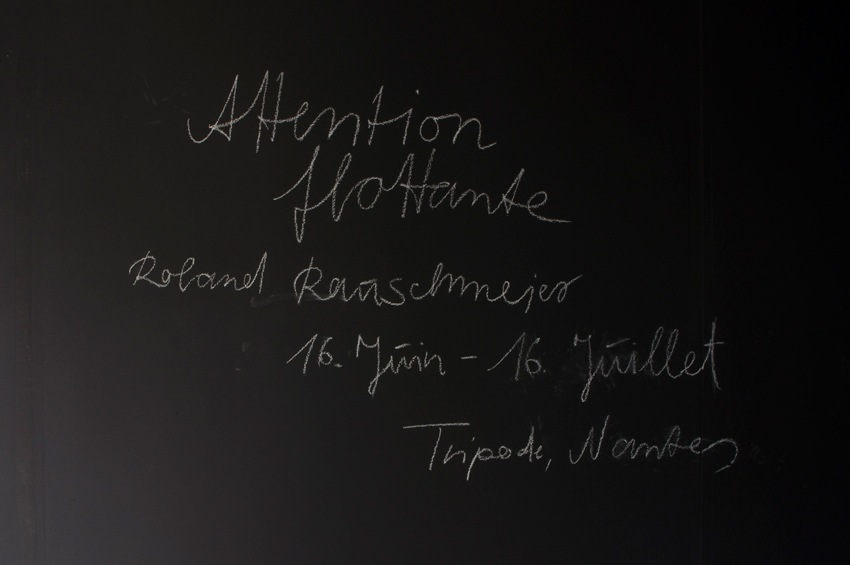 Attention
flottante
Roland Rauschmeier
16. Juin - 16. Juillet
Tripode, Nantes